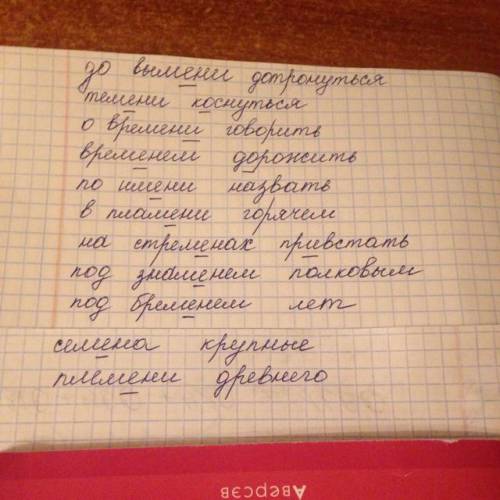 до вымени дотронуться
темени коснуться
о времени говорить
временем дорожить
по имени назвать
в пламени горячем
на стременах привстать
под знаменем полковым
под бременем лет
семена крупные
племени древнего
Аверсэв